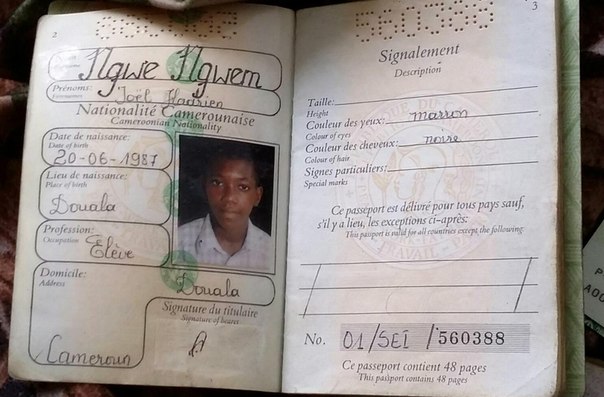 2
560388
Ngwe Ngwem
Prénoms:
Forenames
Joël
Nationalité Camerounaise
Cameroonian Nationality
Date de naissance:
Date of birth
20-06-1987
Lieu de naissance:
Place of birth
Douala
Profession:
Occupation
Elève
Domicile:
Address
Douala
Cameroun
Signature du titulaire
Signature of bearer
560388
3
Signalement
Description
Taille:
Height
Couleur des yeux: marron
Colour of eyes
Couleur des cheveux: noire
Colour of hair
Signes particuliers:
Special marks
Ce passeport est délivré pour tous pays sauf,
s'il y a lieu, les exceptions ci-après:
This passport is valid for all countries except the following
No. 01/SEI/560388
Ce passeport contient 48 pages
This passport contains 48 pages